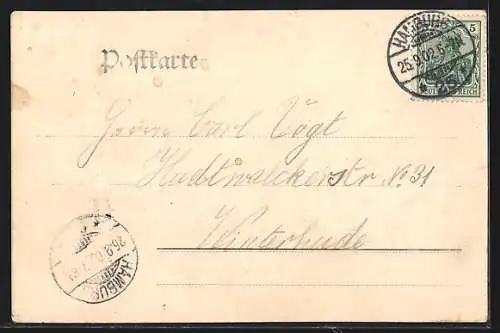 Postkarte
HAMBURG
25.9.02.5-6N.
5
Herrn Carl Vogt
Hudtwalckerstr No 31
Winterhude
HAMBURG
26.9.02